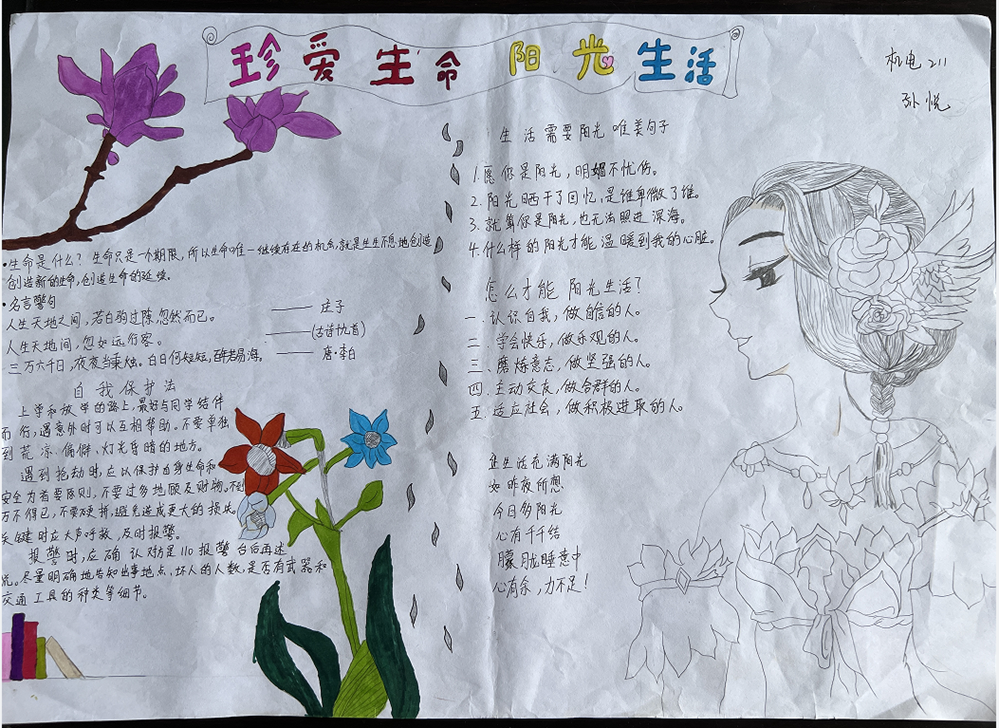 珍爱生命 阳光生活
机电211
孙悦
·生命是什么？生命只是一个期限，所以生命唯一继续存在的机会，就是生生不息地创造
创造新的生命，创造生命的延续。
·名言警句
人生天地之间，若白驹过隙忽然而已。 —— 庄子
人生天地间，忽如远行客。 ——(古诗十九首)
三万六千日，夜夜当秉烛。白日何短短，百年苦易满。 —— 唐·李白
自我保护法
上学和放学的路上，最好与同学结伴
而行，遇意外时可以互相帮助。不要单独
到荒凉、偏僻、灯光昏暗的地方。
遇到抢劫时，应以保护自身生命和
安全为首要原则，不要过多地顾及财物。不到
万不得已，不要硬拼，避免造成更大的损失。
关键时应大声呼救，及时报警。
报警时，应确认对方是110报警台后再述
说。尽量明确地告知出事地点、坏人的人数，是否有武器和
交通工具的种类等细节。
生活需要阳光唯美句子
1.愿你是阳光，明媚不忧伤。
2.阳光晒干了回忆，是谁卑微了谁。
3.就算你是阳光，也无法照进深海。
4.什么样的阳光才能温暖到我的心脏。
怎么才能阳光生活？
一.认识自我，做自信的人。
二、学会快乐，做乐观的人。
三、磨炼意志，做坚强的人。
四.主动交友，做合群的人。
五.适应社会，做积极进取的人。
生活充满阳光
如昨夜所想
今日多阳光
心有千千结
朦胧睡意中
心有余，力不足！